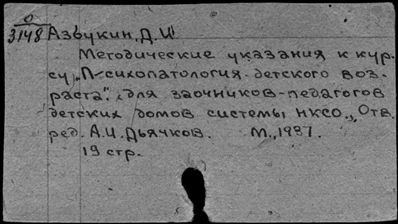 О
3148 Азбукин, Д. И.
Методические указания к кур-
су „Психопатология детского воз-
раста". Для заочников-педагогов
детских домов системы НКСО. Отв.
ред. А.И. Дьячков. М., 1937.
19 стр.